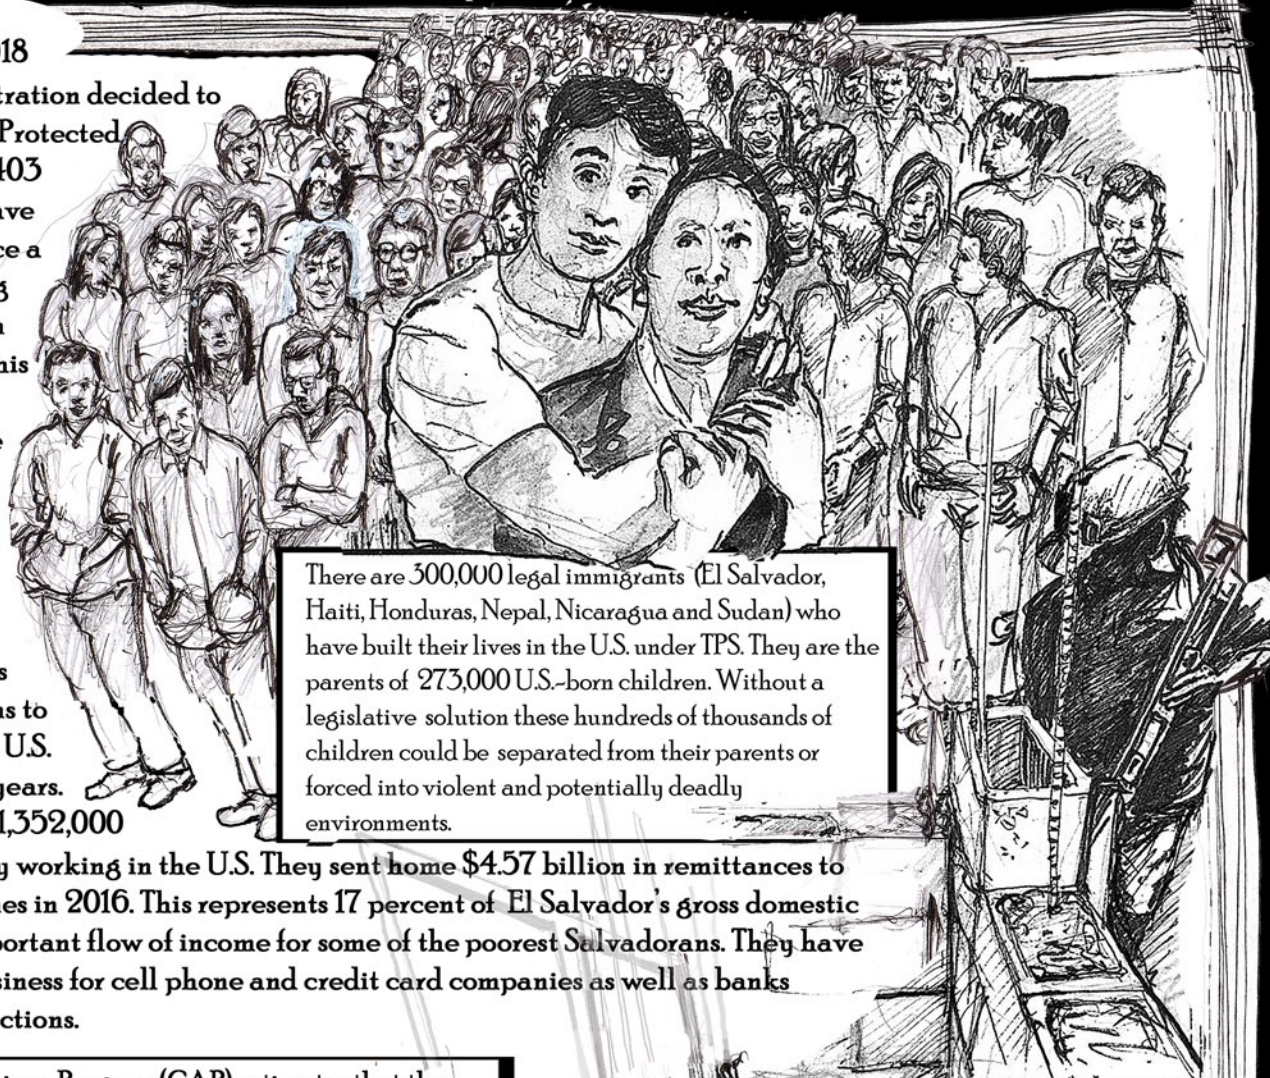 018
tration decided to
Protected
403
ave
ce a
3
his
e
s
ns to
U.S.
years.
1,352,000
There are 300,000 legal immigrants (El Salvador,
Haiti, Honduras, Nepal, Nicaragua and Sudan) who
have built their lives in the U.S. under TPS. They are the
parents of 273,000 U.S.-born children. Without a
legislative solution these hundreds of thousands of
children could be separated from their parents or
forced into violent and potentially deadly
environments.
y working in the U.S. They sent home $4.57 billion in remittances to
es in 2016. This represents 17 percent of El Salvador's gross domestic
portant flow of income for some of the poorest Salvadorans. They have
siness for cell phone and credit card companies as well as banks
ctions.
(CAP)